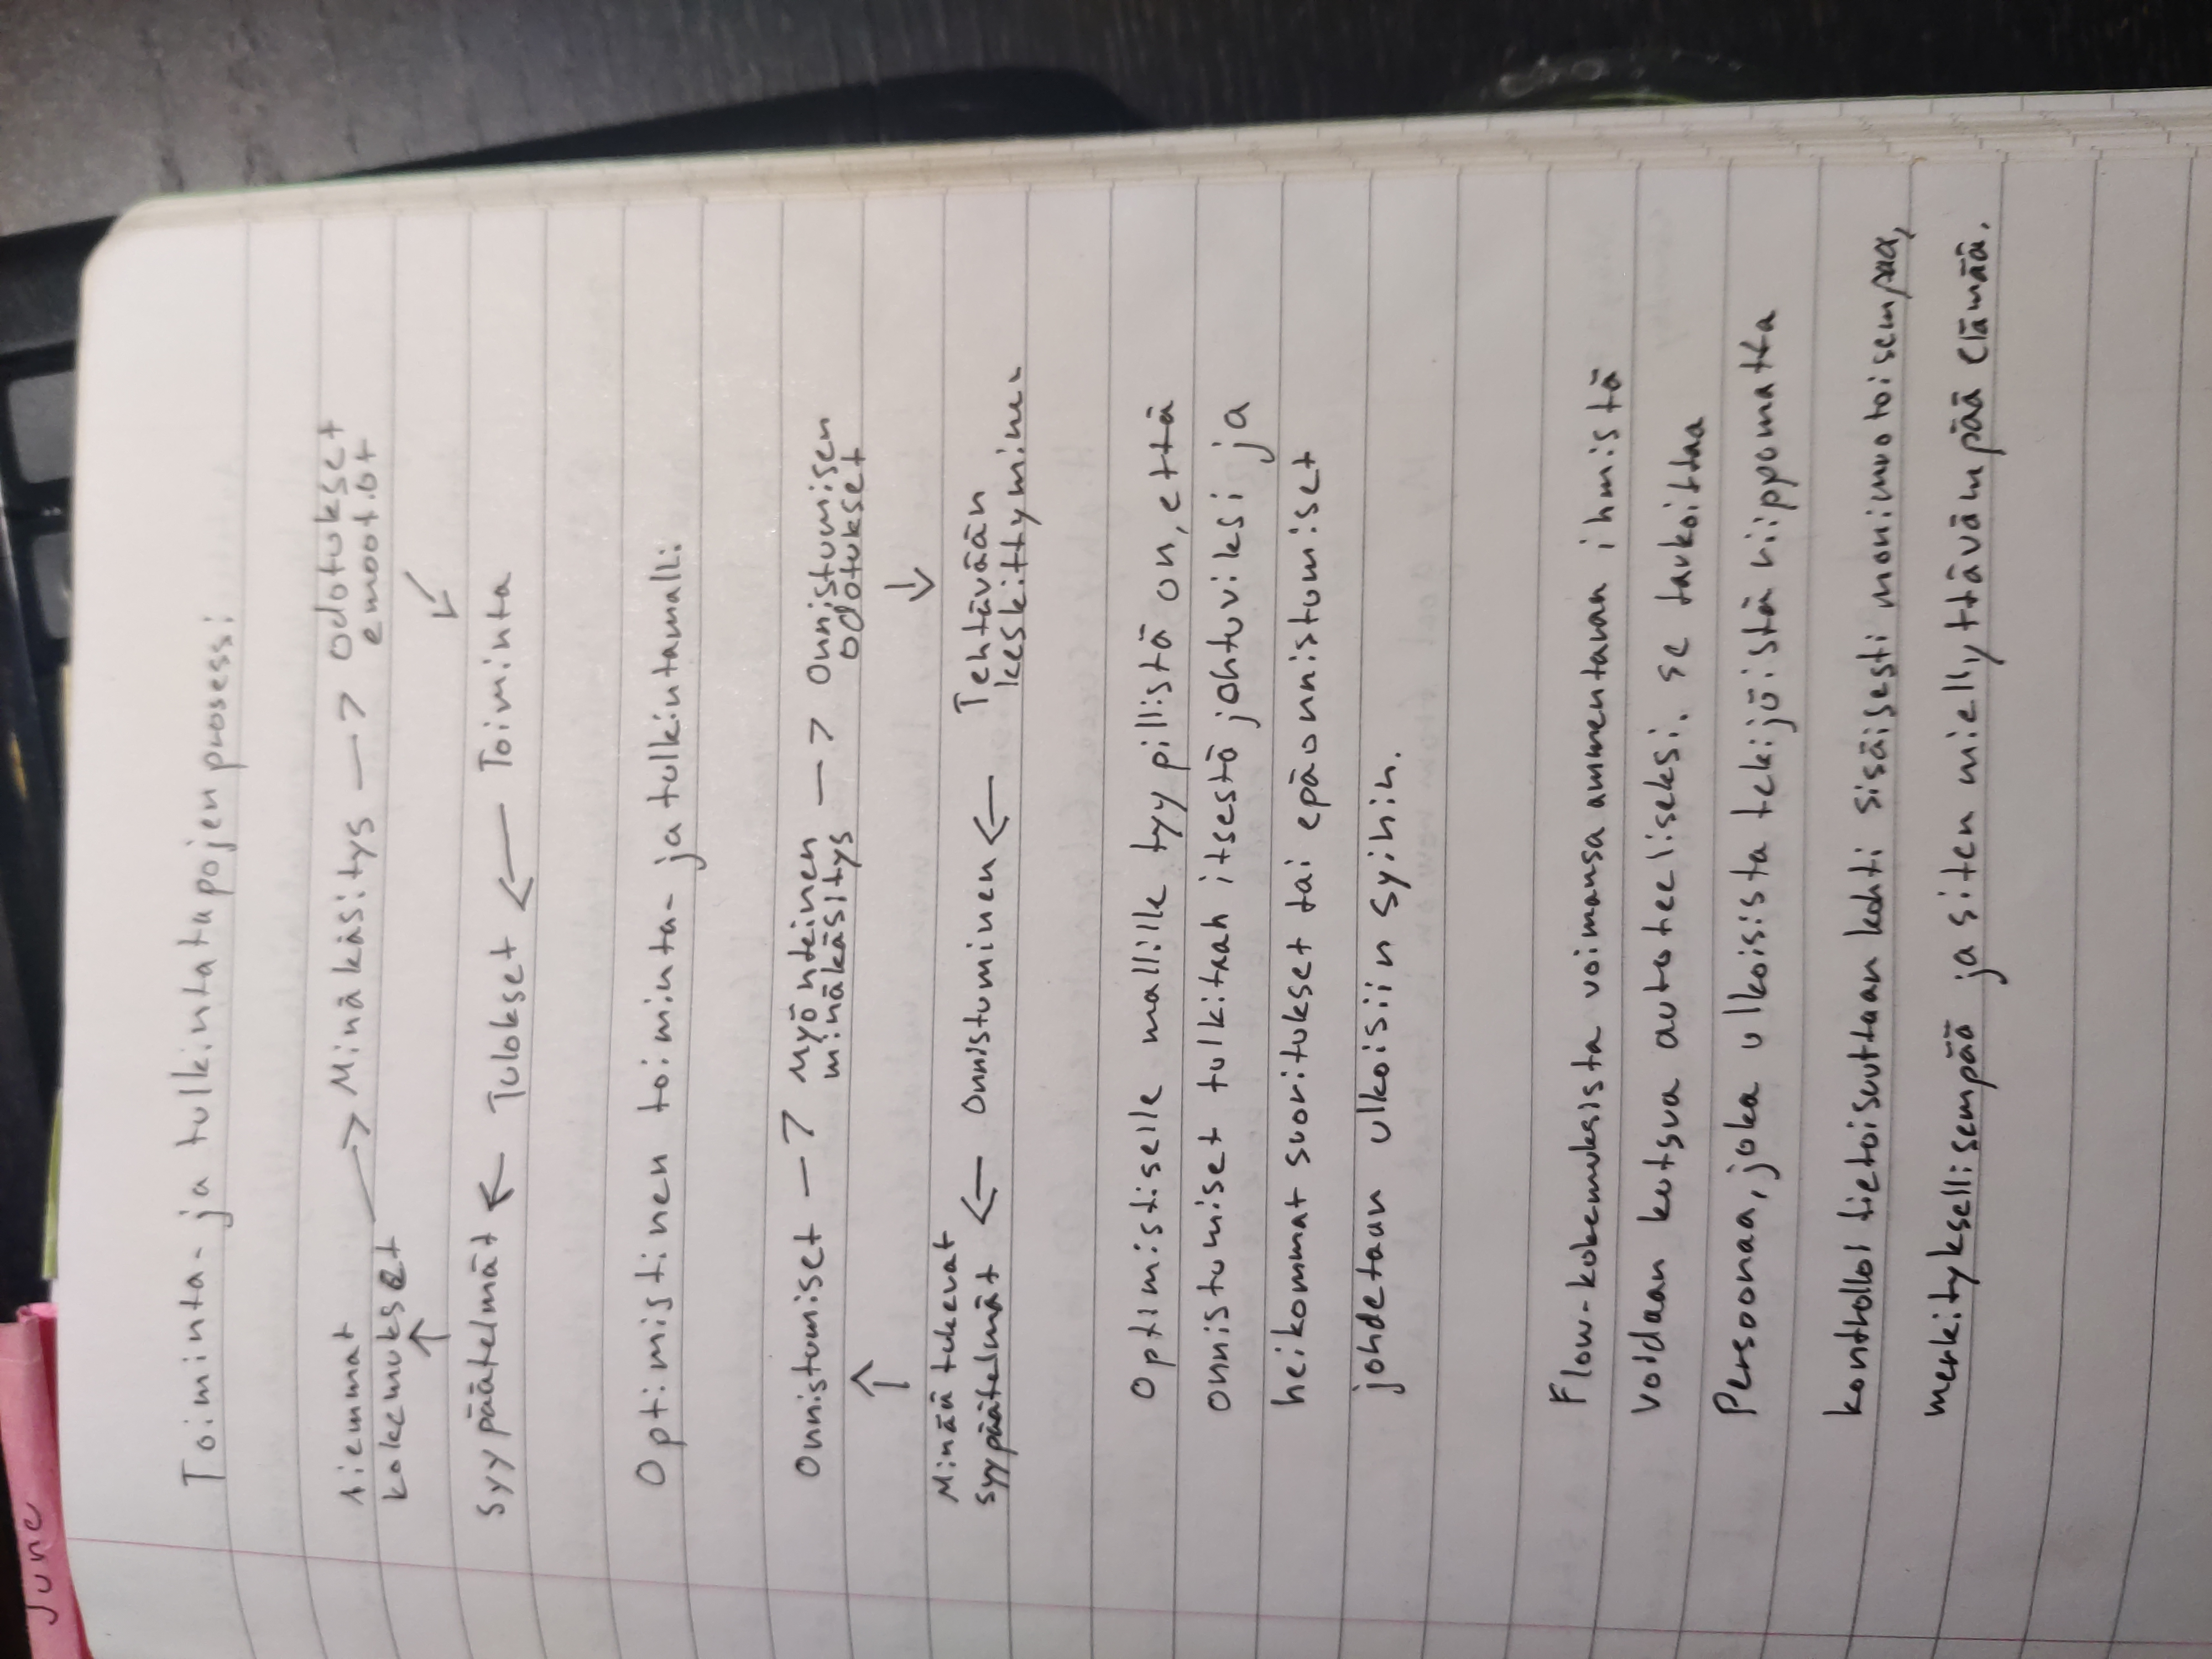 June
Toiminta- ja tulkintatapojen prosessi:
Aiemmat kokemukset → Minäkäsitys → Odotukset emootiot
↑ ↙
Syypäätelmät ← Tulokset ← Toiminta
Optimistinen toiminta- ja tulkintamalli:
Onnistumiset → Myönteinen minäkäsitys → Onnistumisen odotukset
↑ ↓
Minää tukevat syypäätelmät ← Onnistuminen ← Tehtävään keskittyminen
Optimistiselle mallille tyypillistä on, että
onnistumiset tulkitaan itsestä johtuviksi ja
heikommat suoritukset tai epäonnistumiset
johdetaan ulkoisiin syihin.
Flow-kokemuksista voimansa ammentavan ihmistä
voidaan kutsua autoteeliseksi. se tarkoittaa
Persoonaa, joka ulkoisista tekijöistä riippumatta
kontrolloi tietoisuuttaan kohti sisäisesti monimuotoisempaa,
merkityksellisempää ja siten miellyttävämpää elämää.